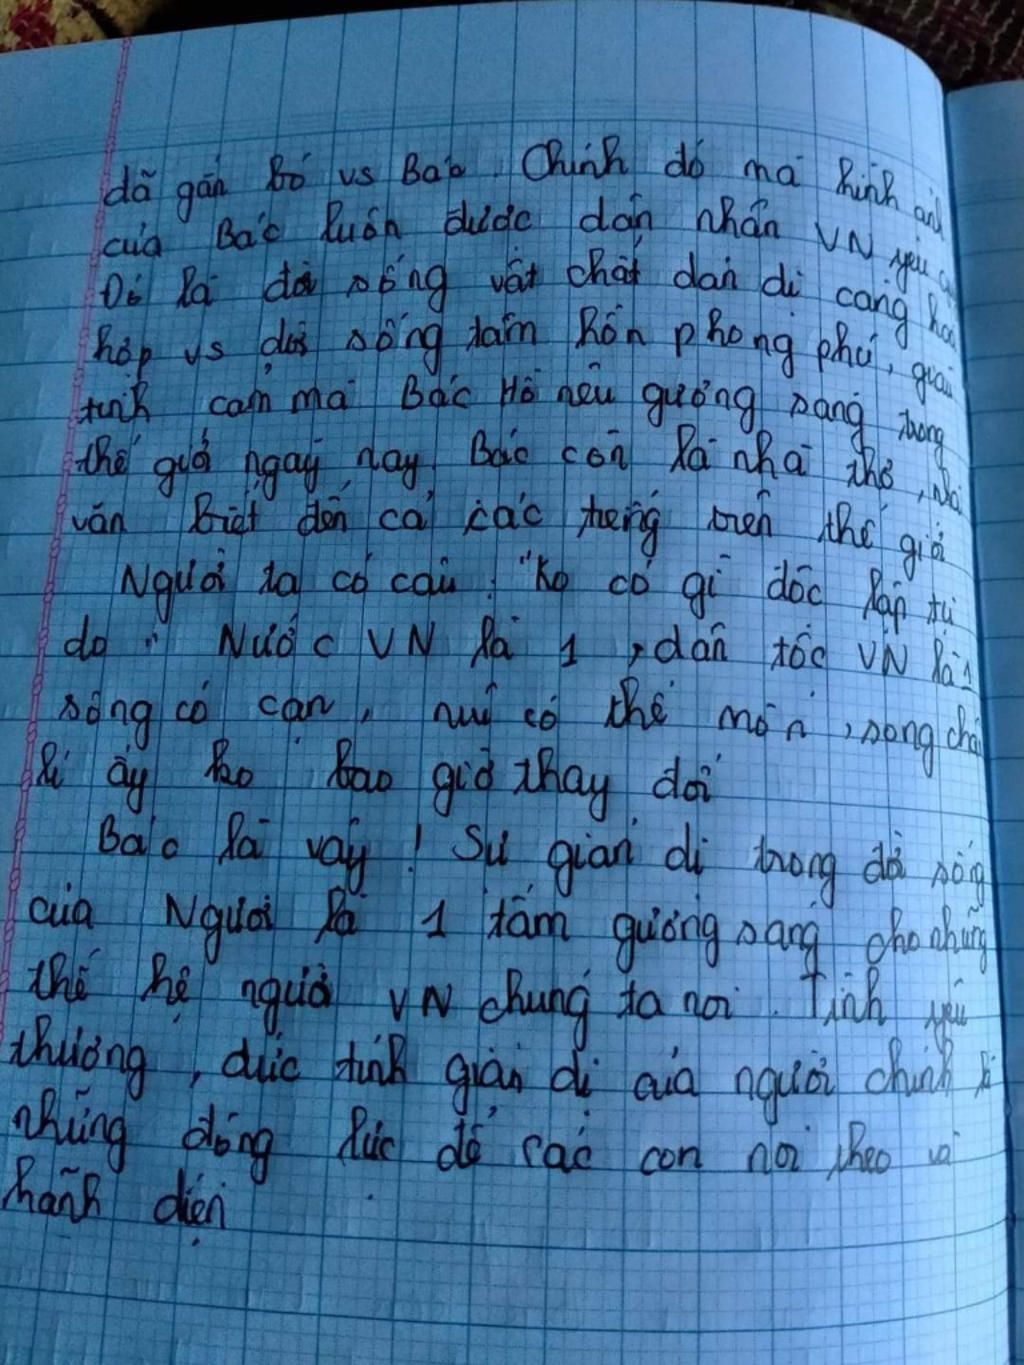 đã gắn bó vs Bác. Chính đó mà hình ảnh
của Bác luôn được dân nhân VN yêu
Đó là đời sống vật chất dản dị càng hoà
hợp vs đời sống tâm hồn phong phú,
tình cảm mà Bác Hồ nêu gương sáng trong
thế giới ngày nay. Bác còn là nhà thơ, nhà
văn biết đến cả các tiếng trên thế giới
Người ta có câu : "Ko có gì độc lập tự
do " Nước VN là 1, dân tộc VN là 1
sông có cạn, núi có thể mòn, song chân
lí ấy ko bao giờ thay đổi
Bác là vậy ! Sự giản dị trong đời sống
của Người là 1 tấm gương sáng cho những
thế hệ người VN chúng ta noi. Tình yêu
thương, đức tính giản dị của người chính là
những động lực để các con noi theo và
hãnh diện